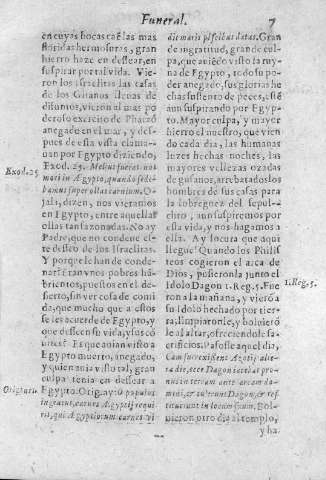 Funeral.
7
en cuyas bocas casē las mas
floridas hermosuras, gran
hierro haze en dessear, en
suspirar por tal vida. Vie
ron los Israelitas las casas
de los Gitanos llenas de
difuntos, vieron al mar po
deroso exercito de Pharaō
anegado en el mar, y des-
pues de esta vista clama-
uan por Egypto diziendo,
Exod. 25.
Exod. 25. Melius fueras nos
mori in Ægypto, quando sede
bamus super ollas carnium. O-
jala, dizen, nos vieramos
en Egypto, entre aquellas
ollas tan sazonadas. No ay
Padre, que no condene es-
te desseo de los Israelitas.
Y porque le han de conde-
nar si eran vnos pobres hā-
brientos, puestos en el de-
sierto, sin ver cosa de comi
da, que mucho que a estos
se les acuerde de Egypto, y
que desseen su vida, y sus co
Egypto muerto, anegado,
y quien auia visto tal, gran
culpa tenia en dessear a
Origenes.
Egypto. Orig. ay: O populus
ingratus, eaturæ Ægyptij requi
rit, qui Ægyptiorum carnes vi
dit maris piscibus datas. Gran
de ingratitud, grande cul-
pa, que auiēdo visto la ruy-
na de Egypto, todo su po
der anegado, sus glorias he
chas sustento de peces, estē
aun suspirando por Egyp-
to. Mayor culpa, y mayor
hierro el nuestro, que vien
do cada dia, las humanas
luzes hechas noches, las
mayores vellezas ozadas
de gusanos, arrebatados los
hombres de sus casas para
la lobreguez del sepul-
chro, aun suspiremos por
esta vida, y nos hagamos a
ella. Ay locura que aqui
llegue? Quando los Philis
teos cogieron el arca de
Dios, pusieronla junto el
1. Reg. 5.
Idolo Dagon 1. Reg. 5. Fue
ron a la mañana, y vierō a
su Idolo hechado por tier-
ra, limpiaronle, y boluierō
le al altar, ofreciendole sa-
crificios. Passose aquel dia,
Cum surrexissent Azotij alte-
ra die, ecce Dagon iacebat pro-
nus in terram ante arcam do-
mini, & tulerunt Dagon, & res
tituerunt in locum suum. Bol-
uieron otro dia al templo,
y ha